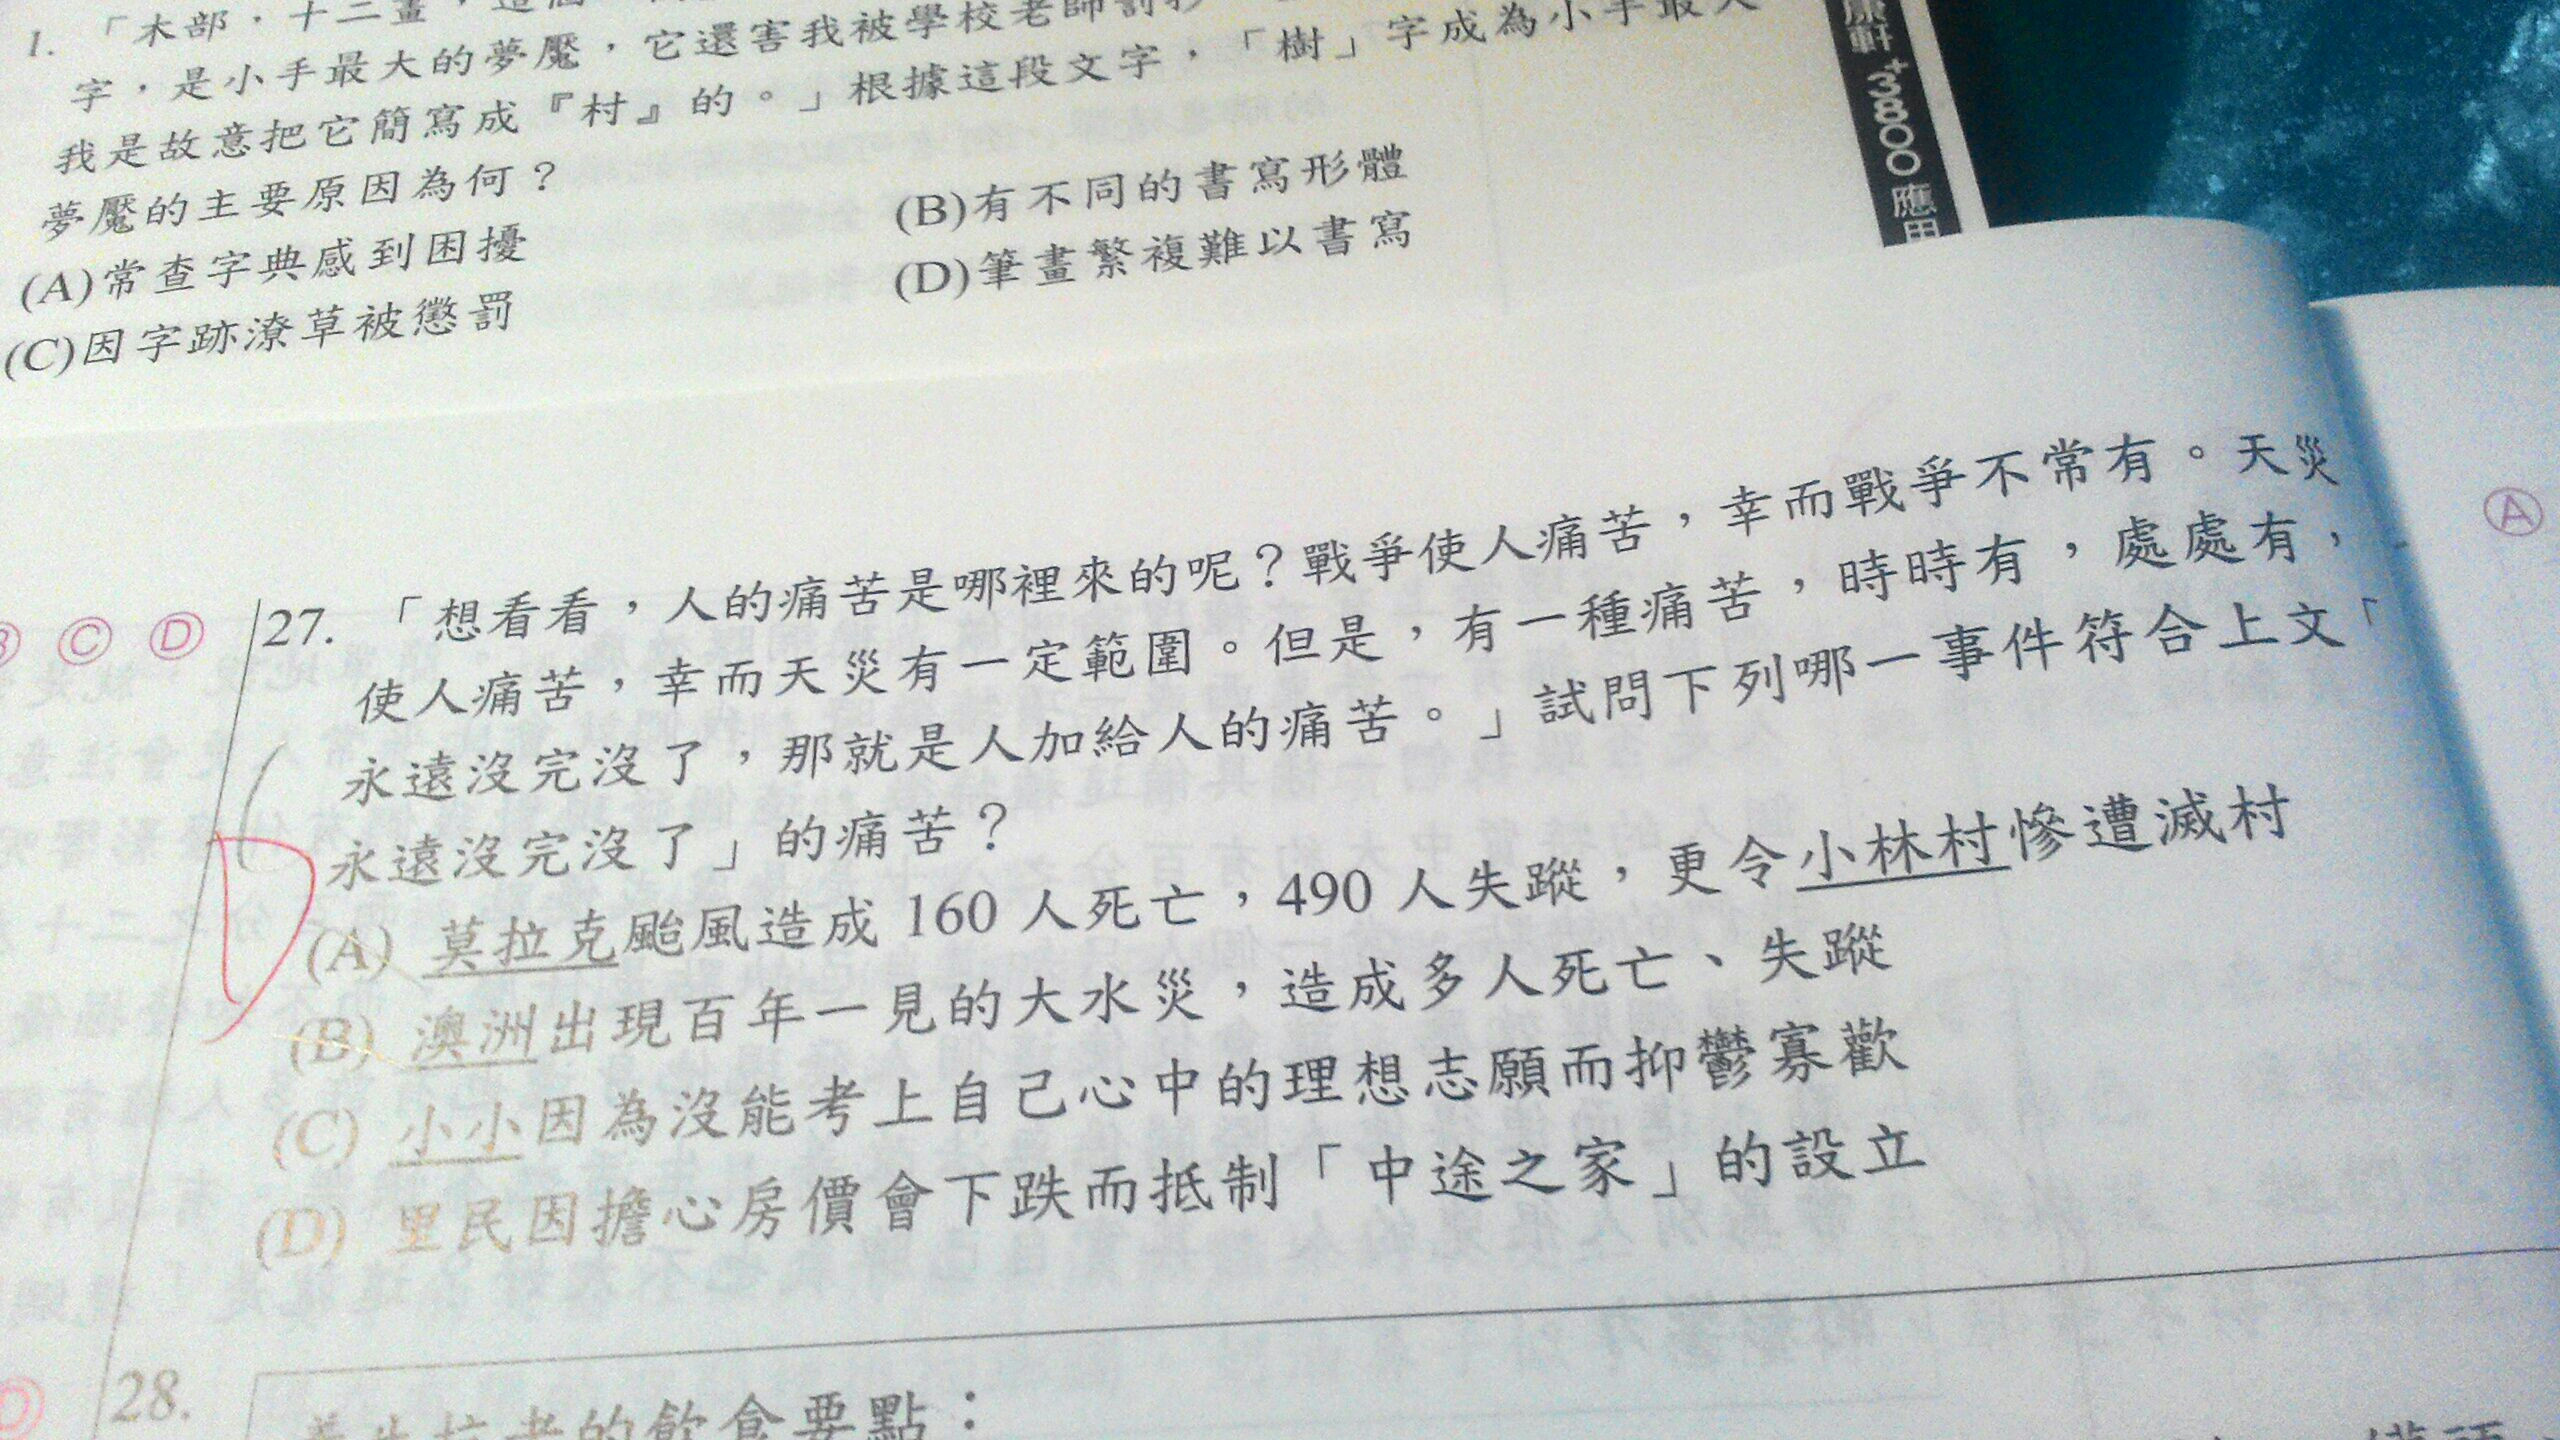 1. 「木部,十二畫,這個
字,是小手最大的夢魘,它還害我被學校老師罰抄
我是故意把它簡寫成『村』的。」根據這段文字,「樹」字成為小手最大
夢魘的主要原因為何?
(A)常查字典感到困擾
(B)有不同的書寫形體
(C)因字跡潦草被懲罰
(D)筆畫繁複難以書寫
康軒 +3800 應用
27. 「想看看,人的痛苦是哪裡來的呢?戰爭使人痛苦,幸而戰爭不常有。天災
使人痛苦,幸而天災有一定範圍。但是,有一種痛苦,時時有,處處有,
永遠沒完沒了,那就是人加給人的痛苦。」試問下列哪一事件符合上文「
永遠沒完沒了」的痛苦?
(A) 莫拉克颱風造成 160 人死亡,490 人失蹤,更令小林村慘遭滅村
(B) 澳洲出現百年一見的大水災,造成多人死亡、失蹤
(C) 小小因為沒能考上自己心中的理想志願而抑鬱寡歡
(D) 里民因擔心房價會下跌而抵制「中途之家」的設立
D
Ⓒ Ⓓ
Ⓐ
28.
的飲食要點: